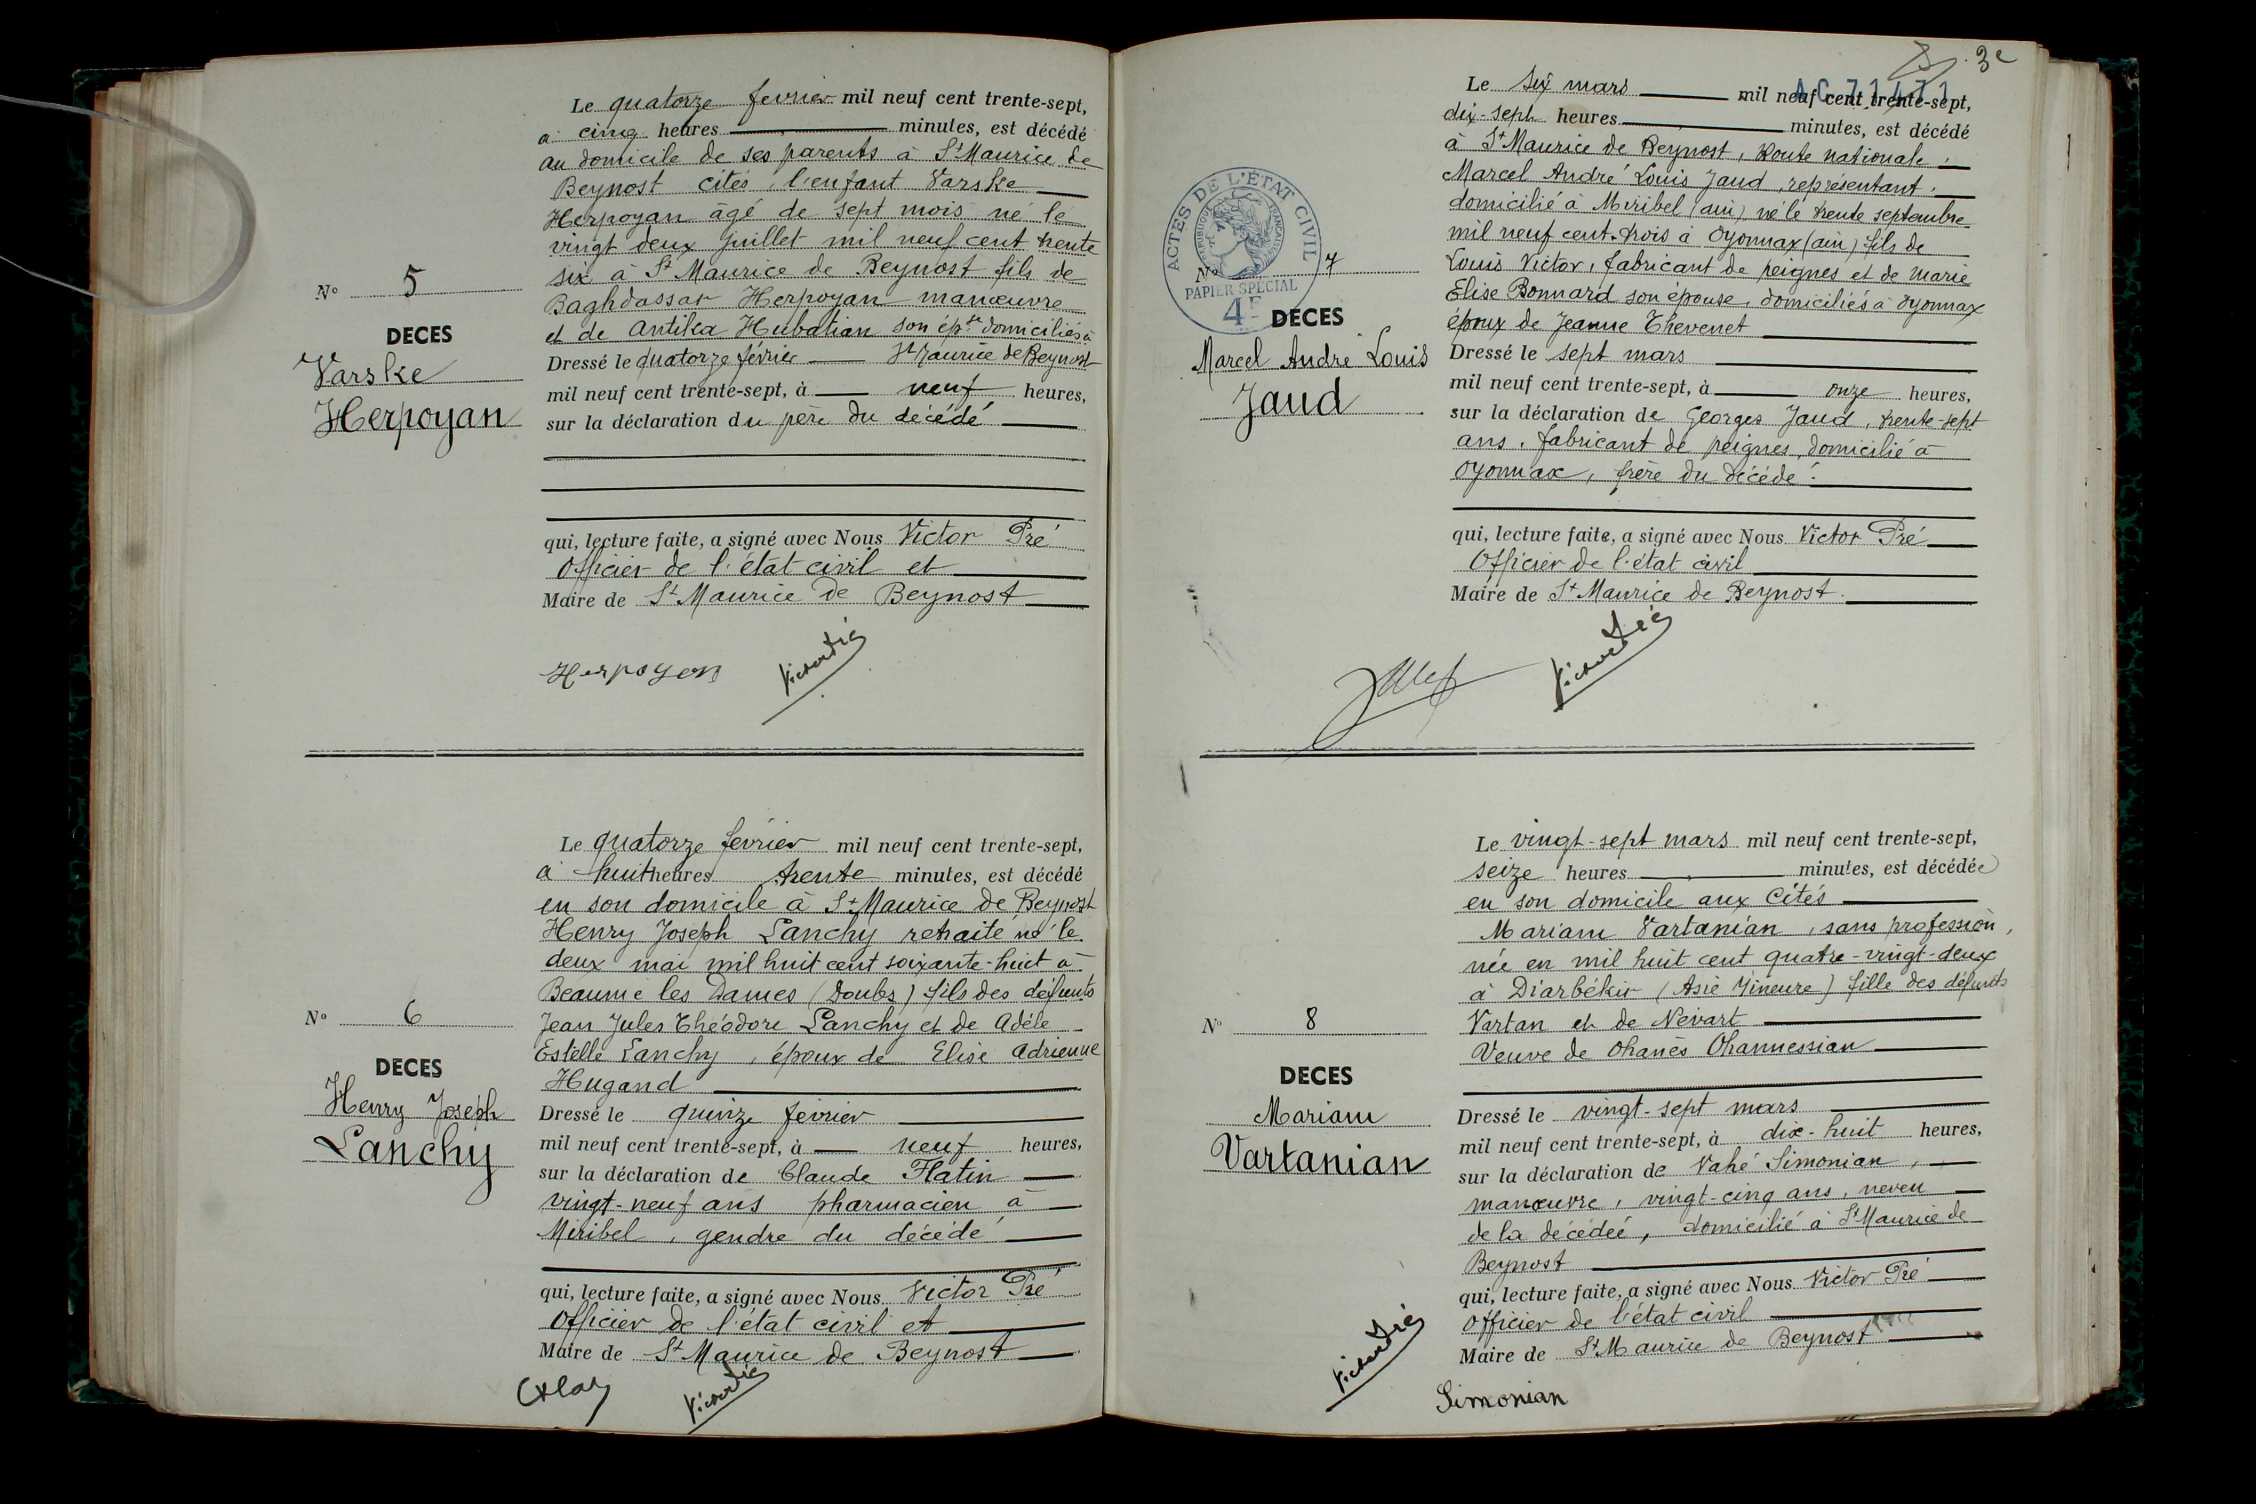 Le quatorze fevrier mil neuf cent trente-sept,
à cinq heures minutes, est décédé
au domicile de ses parents à St Maurice de
Beynost cités, l'enfant Varske
Herpoyan âgé de sept mois né le
vingt deux juillet mil neuf cent trente
six à St Maurice de Beynost fils de
Baghdassar Herpoyan manœuvre
et de Antika Hubatian son épse domiciliés à
Dressé le quatorze février St Maurice de Beynost
mil neuf cent trente-sept, à neuf heures,
sur la déclaration du père du décédé
qui, lecture faite, a signé avec Nous Victor Pré
Officier de l'état civil et
Maire de St Maurice de Beynost
No 5
DECES
Varske
Herpoyan
Herpoyan
Victor Pré
Le quatorze février mil neuf cent trente-sept,
à huit heures trente minutes, est décédé
en son domicile à St Maurice de Beynost
Henry Joseph Lanchy retraité né le
deux mai mil huit cent soixante-huit à
Beaume les Dames (Doubs) fils des défunts
Jean Jules Théodore Lanchy et de Adèle
Estelle Lanchy, époux de Elise Adrienne
Hugand
Dressé le quinze février
mil neuf cent trente-sept, à neuf heures,
sur la déclaration de Claude Flatin
vingt-neuf ans pharmacien à
Miribel, gendre du décédé
qui, lecture faite, a signé avec Nous Victor Pré
Officier de l'état civil et
Maire de St Maurice de Beynost
No 6
DECES
Henry Joseph
Lanchy
Victor Pré
3e
AC 71471
Le six mars mil neuf cent trente-sept,
dix-sept heures minutes, est décédé
à St Maurice de Beynost, Route nationale,
Marcel André Louis Jaud, représentant,
domicilié à Miribel (ain) né le trente septembre
mil neuf cent trois à Oyonnax (ain) fils de
Louis Victor, fabricant de peignes et de Marie
Elise Bonnard son épouse, domiciliés à Oyonnax
époux de Jeanne Thevenet
Dressé le sept mars
mil neuf cent trente-sept, à onze heures,
sur la déclaration de Georges Jaud, trente-sept
ans, fabricant de peignes, domicilié à
Oyonnax, frère du décédé.
qui, lecture faite, a signé avec Nous Victor Pré
Officier de l'état civil
Maire de St Maurice de Beynost.
ACTES DE L'ÉTAT CIVIL
RÉPUBLIQUE FRANÇAISE
PAPIER SPÉCIAL
4F
No 7
DECES
Marcel André Louis
Jaud
Victor Pré
Le vingt-sept mars mil neuf cent trente-sept,
seize heures minutes, est décédée
en son domicile aux Cités
Mariam Vartanian, sans profession,
née en mil huit cent quatre-vingt-deux
à Diarbékir (Asie Mineure) fille des défunts
Vartan et de Nevart
Veuve de Ohanès Ohannessian
Dressé le vingt-sept mars
mil neuf cent trente-sept, à dix-huit heures,
sur la déclaration de Vahé Simonian,
manœuvre, vingt-cinq ans, neveu
de la décédée, domicilié à St Maurice de
Beynost
qui, lecture faite, a signé avec Nous Victor Pré
Officier de l'état civil
Maire de St Maurice de Beynost
No 8
DECES
Mariam
Vartanian
Victor Pré
Simonian